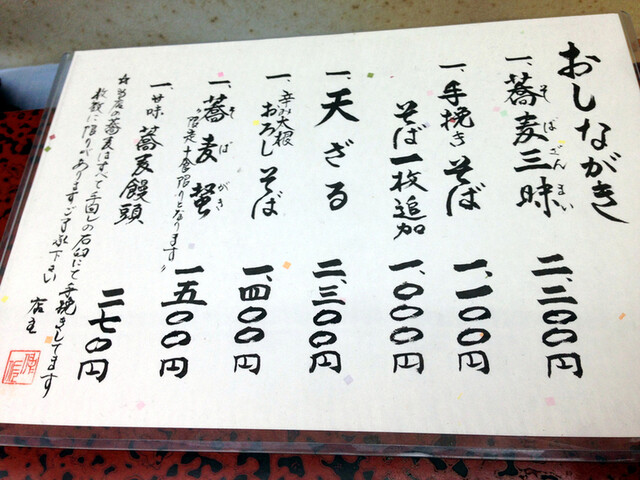 おしながき
一、蕎麦三昧 二、二〇〇円
そばざんまい
一、手挽きそば 一、一〇〇円
そば一枚追加 一、〇〇〇円
一、天ざる 二、三〇〇円
一、辛み大根おろしそば 一、四〇〇円
一、蕎麦 一、五〇〇円
そばがき
"限定十食限りとなります"
一、甘味 蕎麦饅頭 二七〇円
☆当店の蕎麦はすべて手回しの石臼にて手挽きしてます
枚数に限りがありますご了承下さい 店主